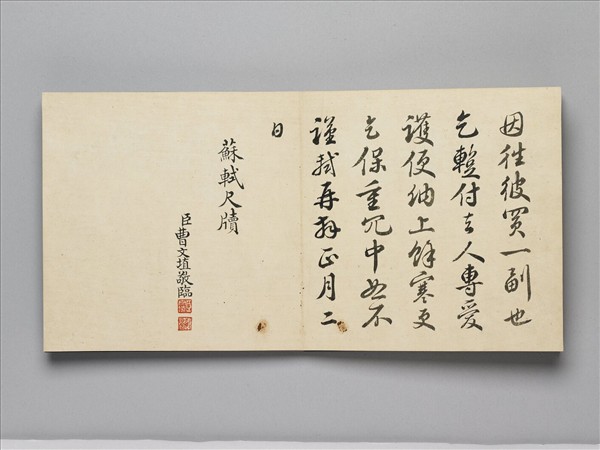 因往彼買一副也
乞蹔付去人專愛
護便納上餘寒更
乞保重冗中恕不
謹軾再拜正月二
日
蘇軾尺牘
臣曹文埴敬臨